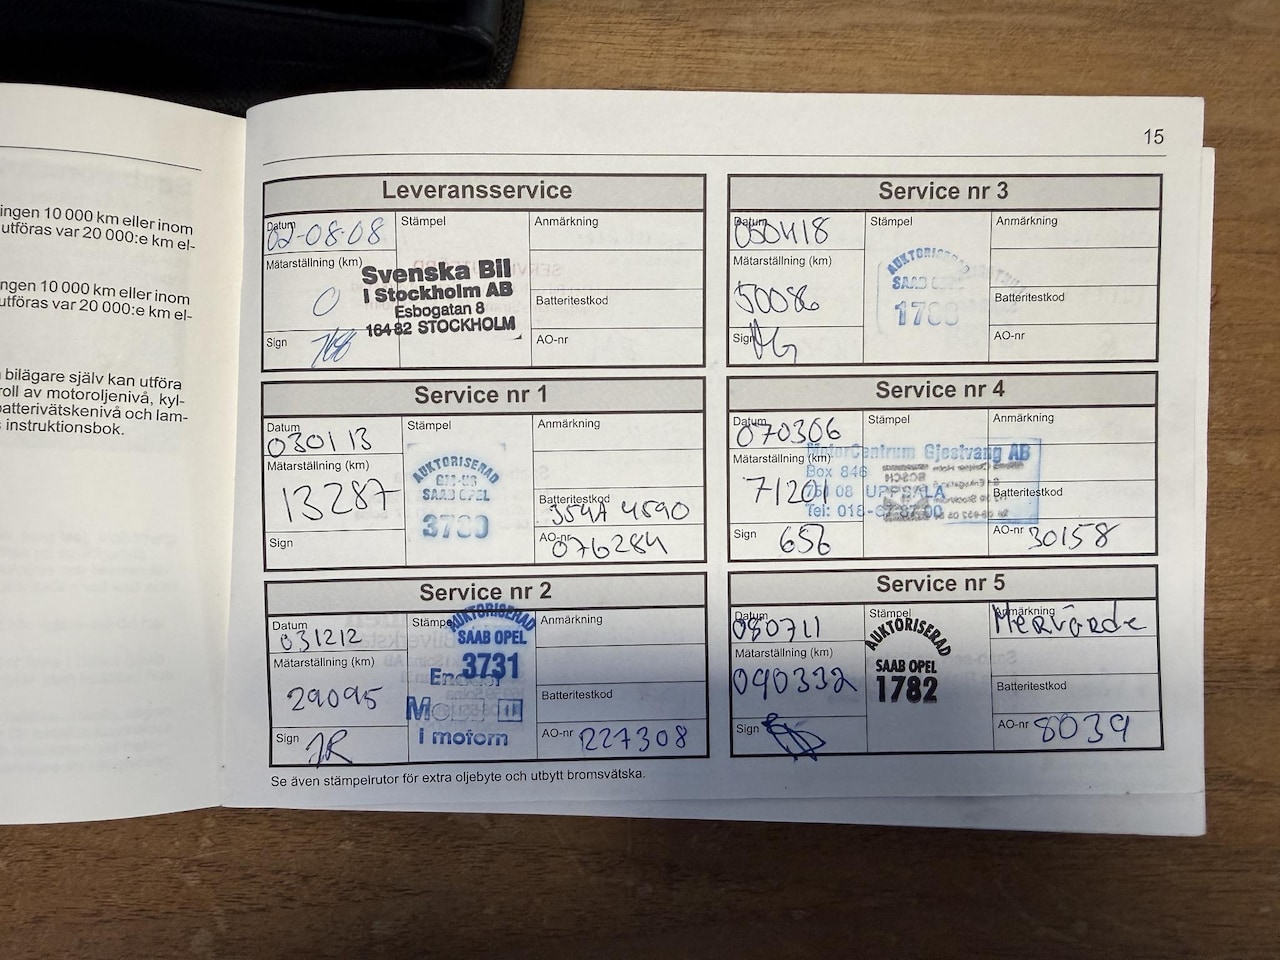 ingen 10 000 km eller inom
utföras var 20 000:e km el-
ngen 10 000 km eller inom
utföras var 20 000:e km el-
bilägare själv kan utföra
roll av motoroljenivå, kyl-
batterivätskenivå och lam-
instruktionsbok.
15
Leveransservice
Datum
02-08-08
Stämpel
Anmärkning
Mätarställning (km)
0
Svenska Bil
I Stockholm AB
Esbogatan 8
164 82 STOCKHOLM
Batteritestkod
Sign
AO-nr
Service nr 1
Datum
030113
Stämpel
Anmärkning
Mätarställning (km)
13287
AUKTORISERAD
SAAB OPEL
Batteritestkod
354A 4590
Sign
AO-nr
076284
Service nr 2
Datum
031212
Stämpel
AUKTORISERAD
SAAB OPEL
3731
Anmärkning
Mätarställning (km)
29095
I motorn
Batteritestkod
Sign
JR
AO-nr
227308
Service nr 3
Datum
050418
Stämpel
Anmärkning
Mätarställning (km)
50086
AUKTORISERAD
SAAB OPEL
Batteritestkod
Sign
AO-nr
Service nr 4
Datum
070306
Stämpel
Anmärkning
Mätarställning (km)
71201
MotorCentrum Gjestvang AB
Box 846
751 08 UPPSALA
Tel: 018-67 87 00
Batteritestkod
Sign
656
AO-nr
30158
Service nr 5
Datum
080711
Stämpel
AUKTORISERAD
SAAB OPEL
1782
Anmärkning
Mervärde
Mätarställning (km)
090332
Batteritestkod
Sign
AO-nr
8039
Se även stämpelrutor för extra oljebyte och utbytt bromsvätska.